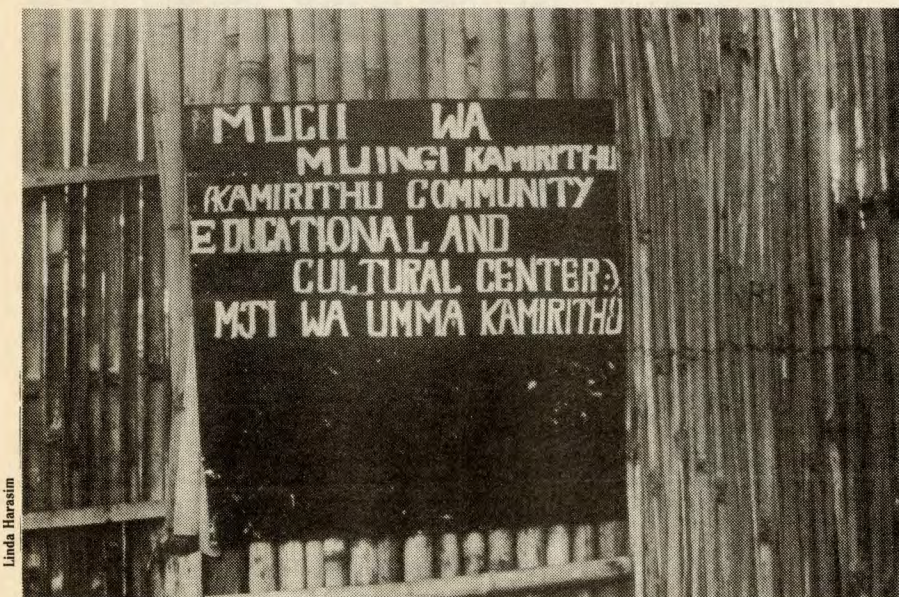 MUCII WA
MUINGI KAMIRITHU
(KAMIRITHU COMMUNITY
EDUCATIONAL AND
CULTURAL CENTER:),
MJI WA UMMA KAMIRITHU
Linda Harasim